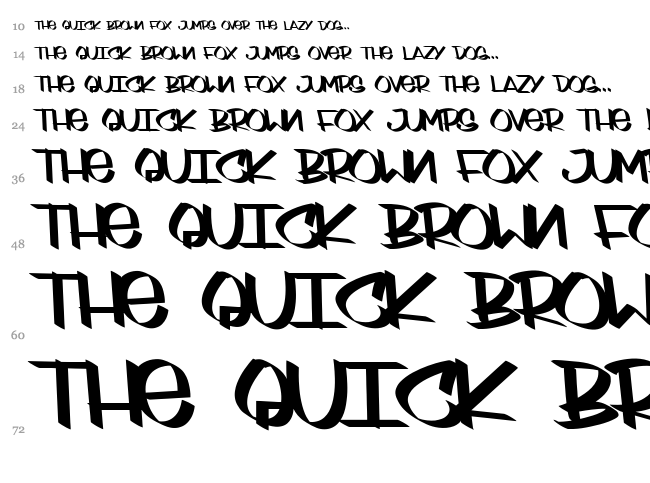 10 THE QUICK BROWN FOX JUMPS OVER THE LAZY DOG...
14 THE QUICK BROWN FOX JUMPS OVER THE LAZY DOG...
18 THE QUICK BROWN FOX JUMPS OVER THE LAZY DOG...
24 THE QUICK BROWN FOX JUMPS OVER THE
36 THE QUICK BROWN FOX JUMP
48 THE QUICK BROWN FO
60 THE QUICK BROW
72 THE QUICK BR